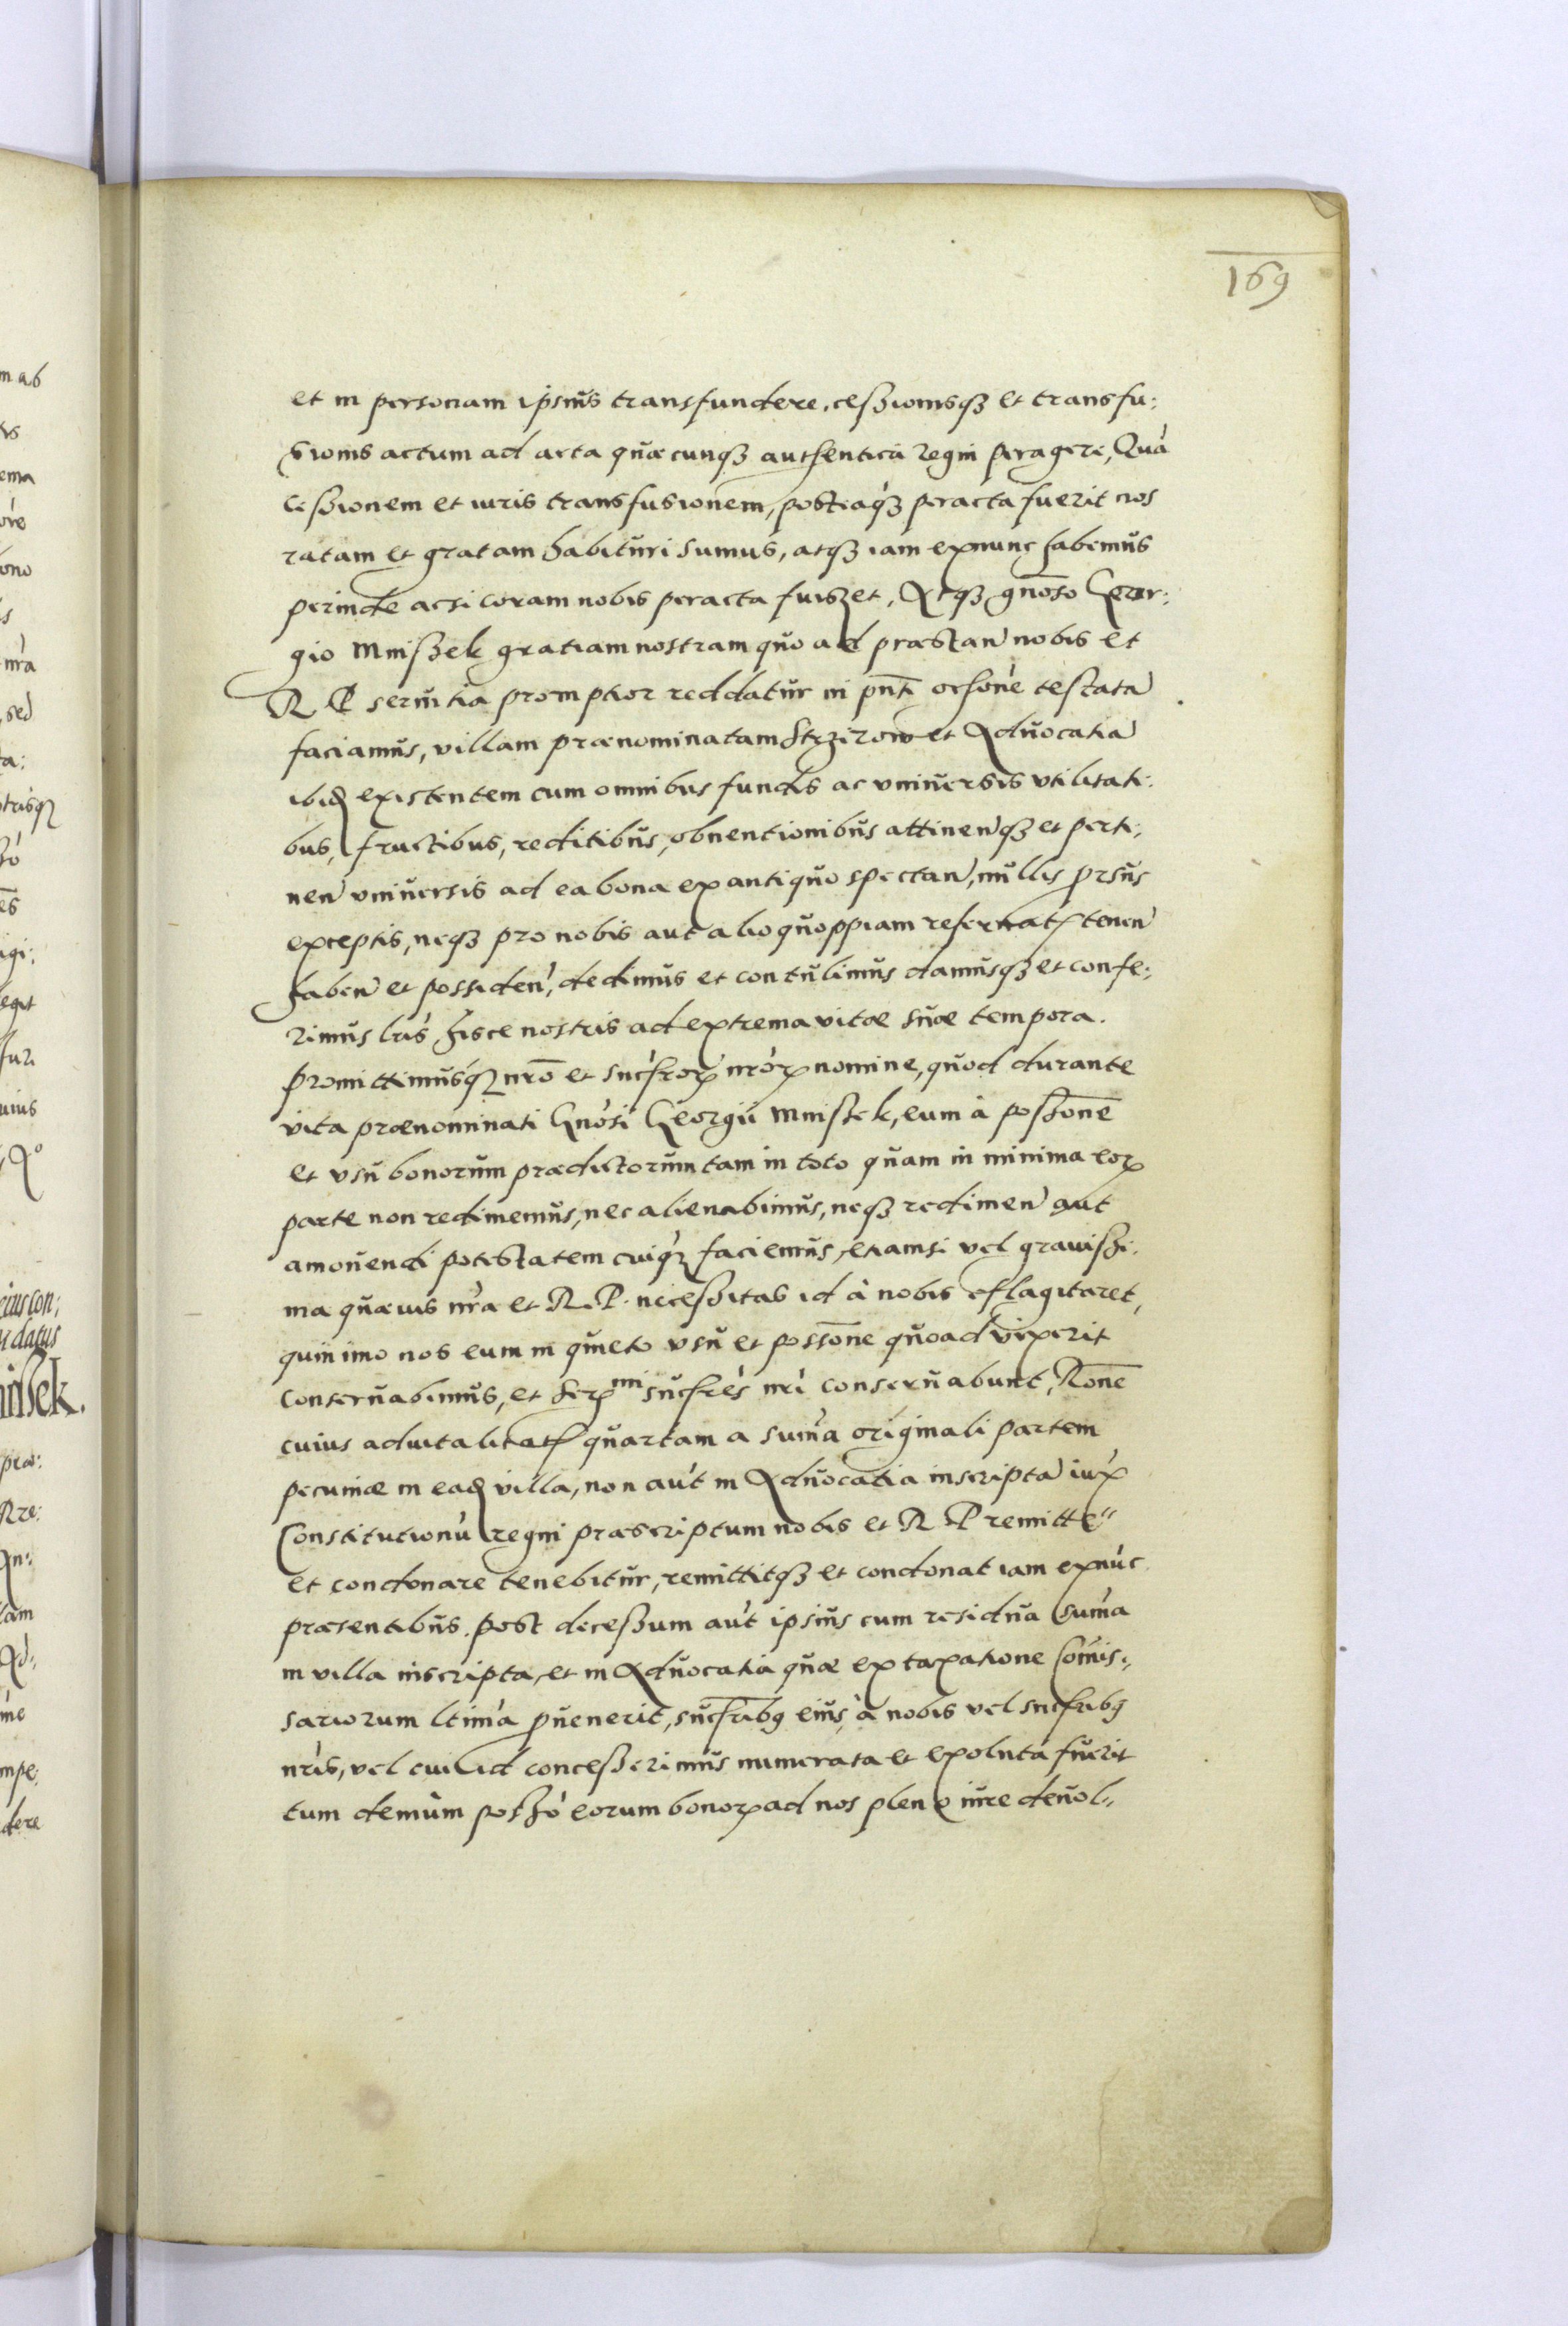 169
et in personam ipsius transfundere, cessionisq3 et transfu:
sionis actum ad acta quæcunq3 authentica regni peragere, Quã
cessionem et iuris transfusionem, posteaq3 peracta fuerit nos
ratam et gratam habituri sumus, atq3 iam exnunc habemus
perinde acsi coram nobis peracta fuisset, Atq3 gnõso Geor:
gio Mniszek gratiam nostram quo ad præstan nobis et
R P seruitia promptior reddatur in pñti ochone testatã
faciamus, villam prænominatam Strzizow et Aduocatiã
ibid existentem cum omnibus fundis ac vniuersis vtilitati:
bus, fructibus, reditibus, obuentionibus attinenq3 et perti:
nen vniuersis ad ea bona ex antiquo spectan, nullis prsus
exceptis, neq3 pro nobis aut alio quoppiam reseruat, tenen
haben et possiden, dedimus et contulimus damusq3 et confe:
rimus lris hisce nostris ad extrema vitæ suæ tempora.
Promittimusq3 nrõ et sucsror nror nomine, quod durante
vita prænominati Gnosi Georgii Mnissek, eum à possone
et vsu bonorum prædictorum tam in toto quam in minima eor
parte non redimemus, nec alienabimus, neq3 redimen aut
amouendi potestatem cuiq3 faciemus, etiamsi vel grauissi:
ma quæuis nra et R. P. necessitas id à nobis efflagitaret,
quinimo nos eum in quieto vsu et possone quoad vixerit
conseruabimus, et Ser mi sucsres nri conseruabunt, Rone
cuius aduitalitat quartam a suma originali partem
pecuniæ in ead villa, non aut in Aduocatia inscriptã iux
Constitutionu regni præscriptum nobis et R P remitte"
et condonare tenebitur, remittitq3 et condonat iam exnuc
præsentibus. Post decessum aut ipsius cum residua suma
in villa inscripta, et in Aduocatia quæ ex taxatione Comis:
sariorum ltima puenerit, sucsribq eius, à nobis vel sucsribq
nris, vel cui id concesserimus numerata et exoluta fuerit
tum demum posso eorum bonor ad nos pleno iure deuol"